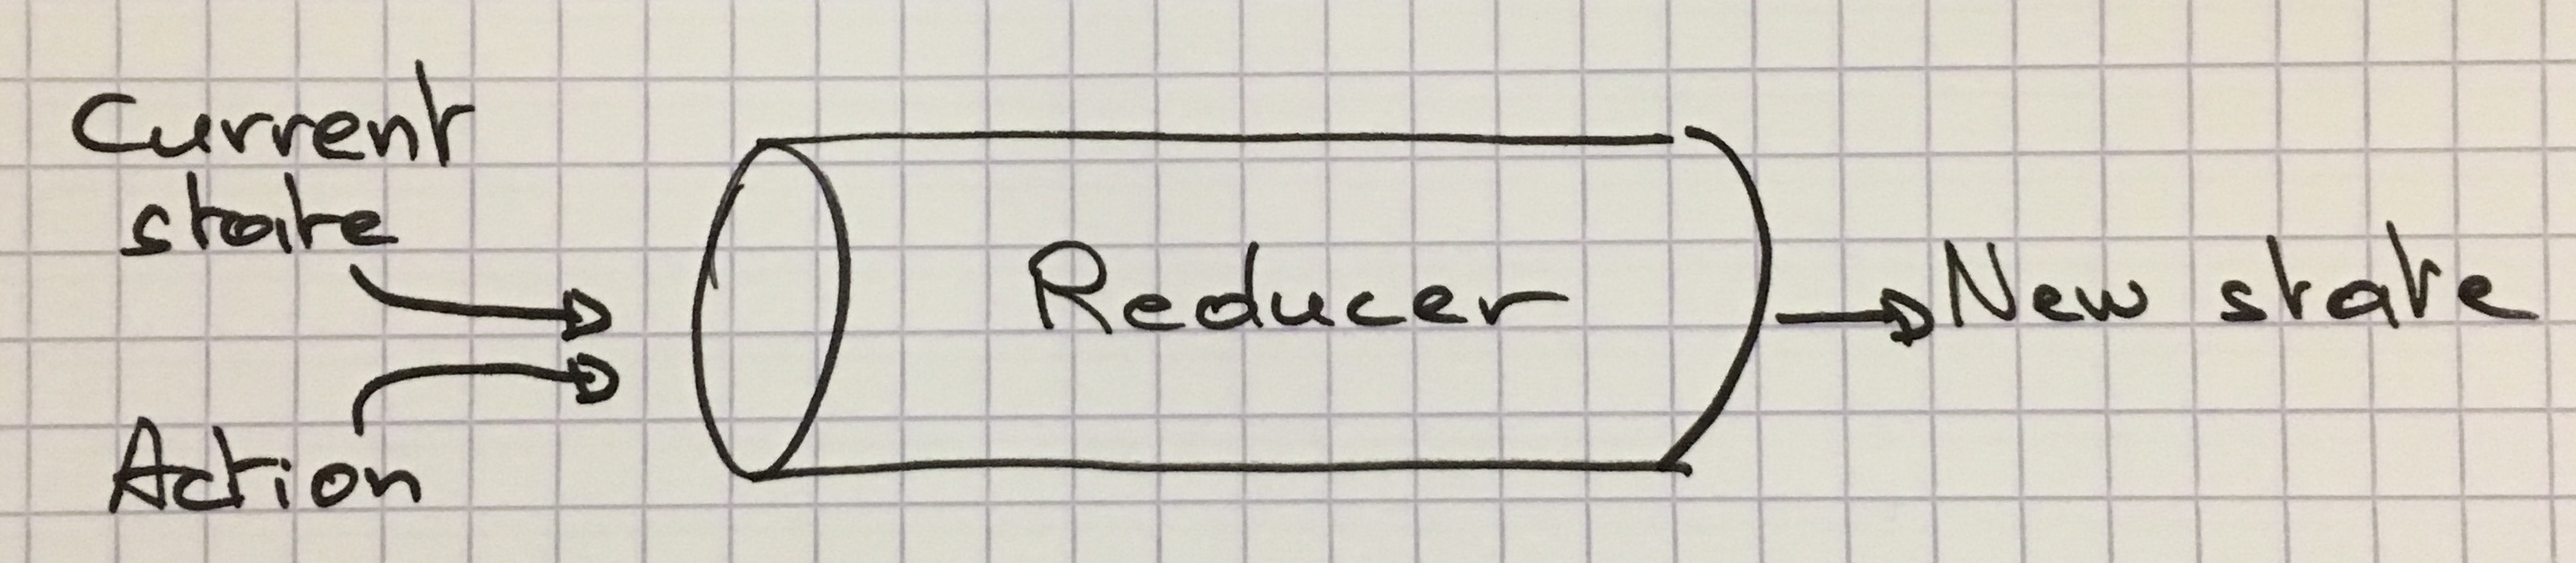 Current
state
Action
Reducer
New state